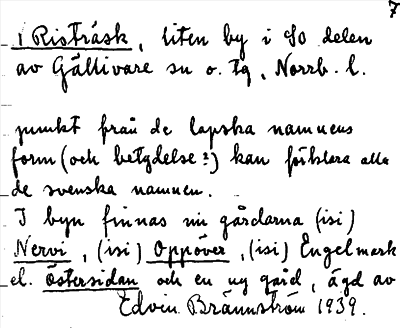 7
i Risträsk, liten by i SO delen
av Gällivare sn o. tg, Norrb. l.
punkt från de lapska namnens
form (och betydelse?) kan förklara alla
de svenska namnen.
I byn finnas nu gårdarna (isi)
Nervi, (isi) Oppöver, (isi) Engelmark
el. Östersidan och en ny gård, ägd av
Edvin Brännström 1939.